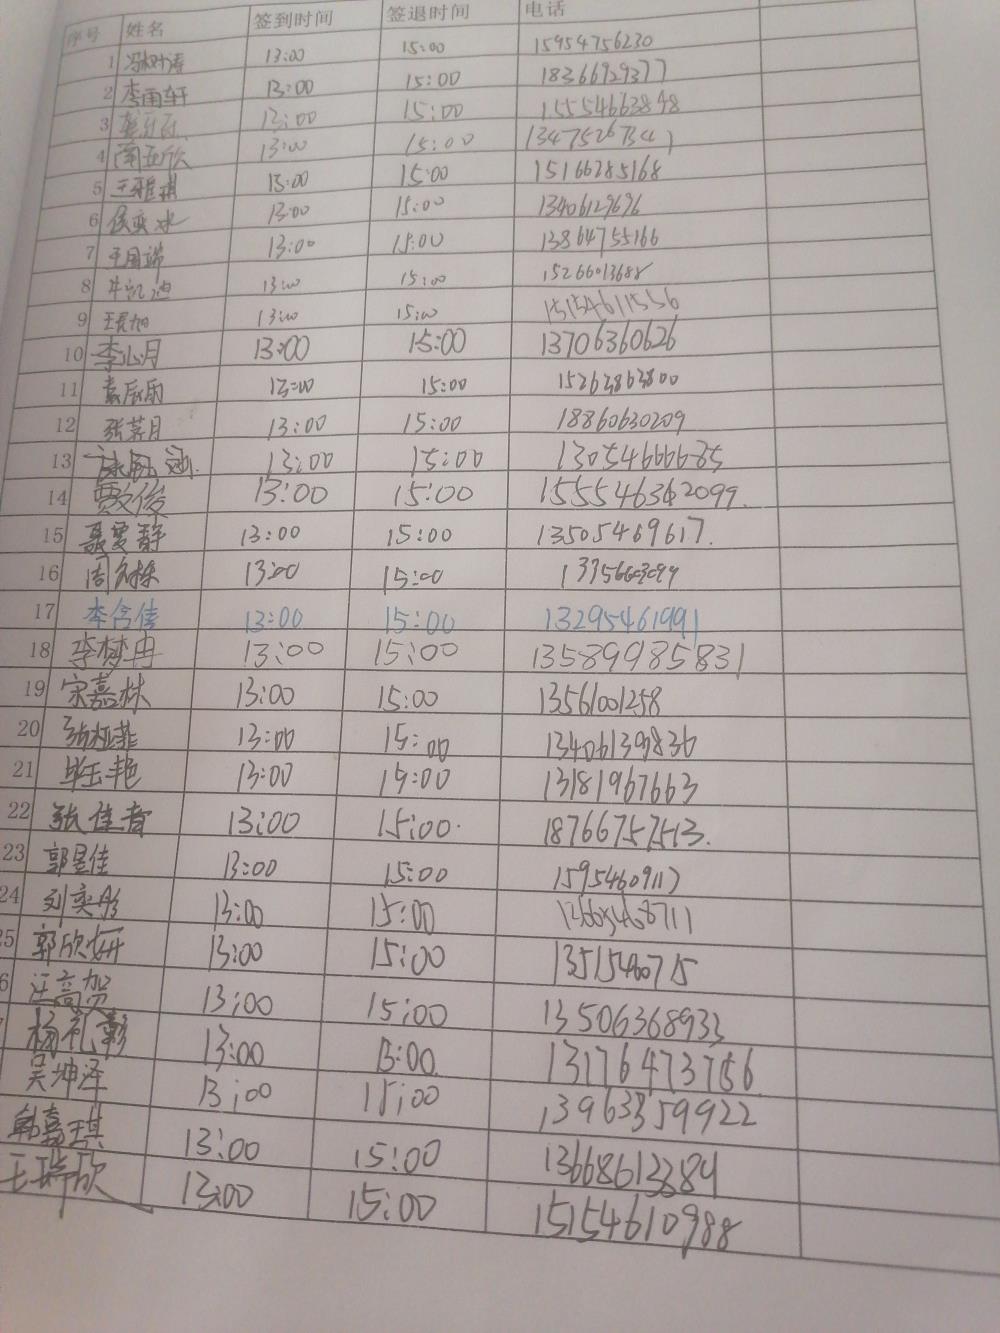 序号 姓名 签到时间 签退时间 电话
1 冯树涛 13:00 15:00 15954756230
2 李雨轩 13:00 15:00 18366929377
3 13:00 15:00 15554663898
4 南亚欣 13:00 15:00 13475267341
5 王雅琪 13:00 15:00 15166285168
6 侯奕冰 13:00 15:00 13406129696
7 王国瑞 13:00 15:00 13864755166
8 牛凯迪 13:00 15:00 15266013688
9 王君旭 13:00 15:00 15154611556
10 李沁月 13:00 15:00 13706360626
11 袁辰雨 13:00 15:00 15263863800
12 张菜月 13:00 15:00 18860630209
13 13:00 15:00 13054666685
14 贾文俊 13:00 15:00 155546362099.
15 聂雯静 13:00 15:00 13505469617.
16 13:00 15:00
17 李含佳 13:00 15:00 13295461991
18 李梦冉 13:00 15:00 13589985831
19 宋嘉林 13:00 15:00 13561001258
20 张桠菲 13:00 15:00 13406139836
21 毕玉艳 13:00 15:00 13181967663
22 张佳音 13:00 15:00. 18766757513.
23 郭昱佳 13:00 15:00 15954609117
24 刘奕彤 13:00 15:00
25 郭欣妍 13:00 15:00 13515460715
6 汪高贺 13:00 15:00 13506368933
杨礼彰 13:00 13:00. 13176473756
吴坤泽 13:00 15:00 13963359922
韩嘉琪 13:00 15:00 13668613384
王瑞欣 13:00 15:00 15154610988